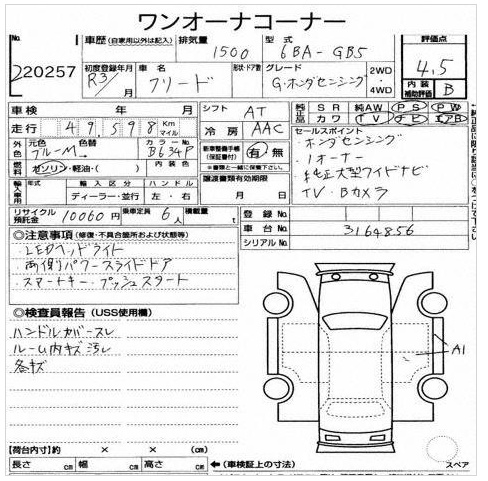 ワンオーナーコーナー
No. 220257
車歴(自家用以外は記入) 排気量 1500 型式 6BA-GB5 評価点 4.5
初度登録年月 R3/ 月 車名 フリード 形状・ドア数 グレード G・ホンダセンシング 2WD 4WD 内装補助評価 B
車検 年 月 シフト AT 純正品 SR 純AW PS PW
走行 49,598 Km マイル 冷房 AAC カワ TV ナビ エアB
外色 元色 ブルーM 色替 カラーNo. B634P 新車整備手帳(保証書付) 有 無 セールスポイント ・ホンダセンシング
燃料 ガソリン・軽油・( ) 内装色 ※書類と一緒に保管して下さい。 ・1オーナー
輸入車用 年式 輸入区分 ハンドル 譲渡書類有効期限 ・純正大型ワイドナビ
ディーラー・並行 左・右 月 日 TV・Bカメラ
リサイクル預託金 10060円 乗車定員 6人 積載量 登録No.
車台No. 3164856
シリアルNo.
◎注意事項(修復・不具合箇所および状態等)
・LEDヘッドライト
・両側パワースライドドア
・スマートキー・プッシュスタート
◎検査員報告(USS使用欄)
ハンドルカバースレ
ルーム内キズ汚レ
各キズ
A1
【荷台内寸】約 × × (cm)
長さ cm 幅 cm 高さ cm ←(車検証上の寸法) スペア